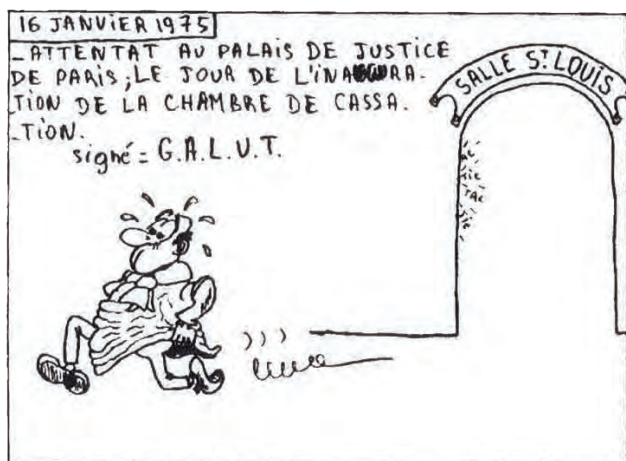 16 JANVIER 1975
_ATTENTAT AU PALAIS DE JUSTICE
DE PARIS; LE JOUR DE L'INAUGURA.
_TION DE LA CHAMBRE DE CASSA.
_TION.
signé = G.A.L.U.T.
SALLE ST. LOUIS
TIC
TAC